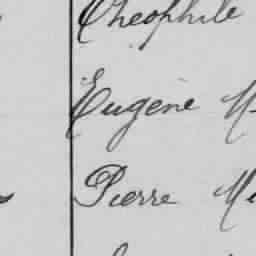 Théophile
Eugène
Pierre